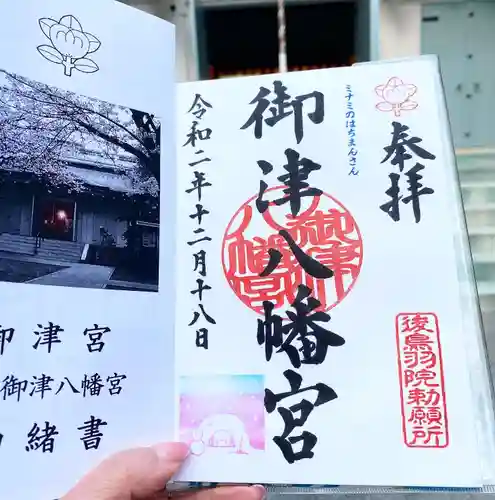 奉拝
ミナミのはちまんさん
御津八幡宮
御津八幡宮
後鳥羽院勅願所
令和二年十二月十八日
御津宮
御津八幡宮
由緒書